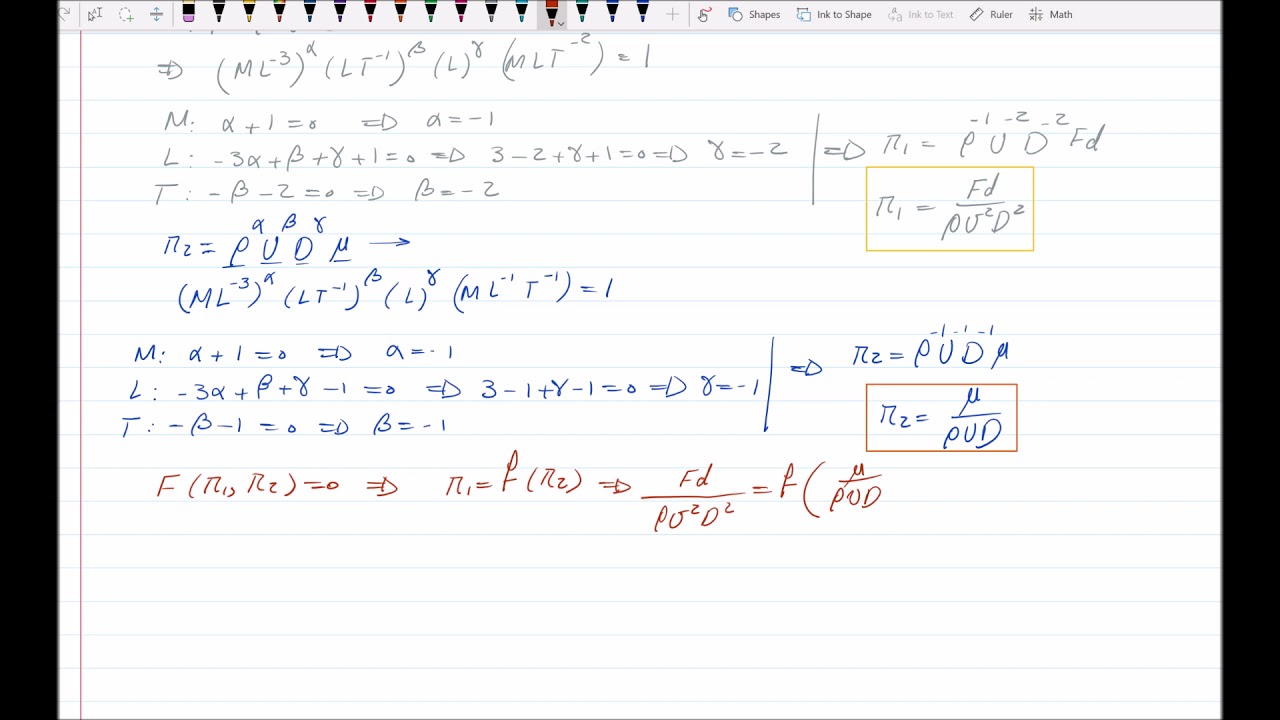 Shapes Ink to Shape Ink to Text Ruler Math
=> (ML⁻³)^α (LT⁻¹)^β (L)^γ (MLT⁻²) = 1
M: α + 1 = 0 => α = -1
L: -3α + β + γ + 1 = 0 => 3 - 2 + γ + 1 = 0 => γ = -2
T: -β - 2 = 0 => β = -2
=> π₁ = ρ⁻¹ U⁻² D⁻² Fd
π₁ = Fd / ρU²D²
π₂ = ρ^α U^β D^γ μ →
(ML⁻³)^α (LT⁻¹)^β (L)^γ (ML⁻¹T⁻¹) = 1
M: α + 1 = 0 => α = -1
L: -3α + β + γ - 1 = 0 => 3 - 1 + γ - 1 = 0 => γ = -1
T: -β - 1 = 0 => β = -1
=> π₂ = ρ⁻¹ U⁻¹ D⁻¹ μ
π₂ = μ / ρUD
F(π₁, π₂) = 0 => π₁ = f(π₂) => Fd / ρU²D² = f( μ / ρUD